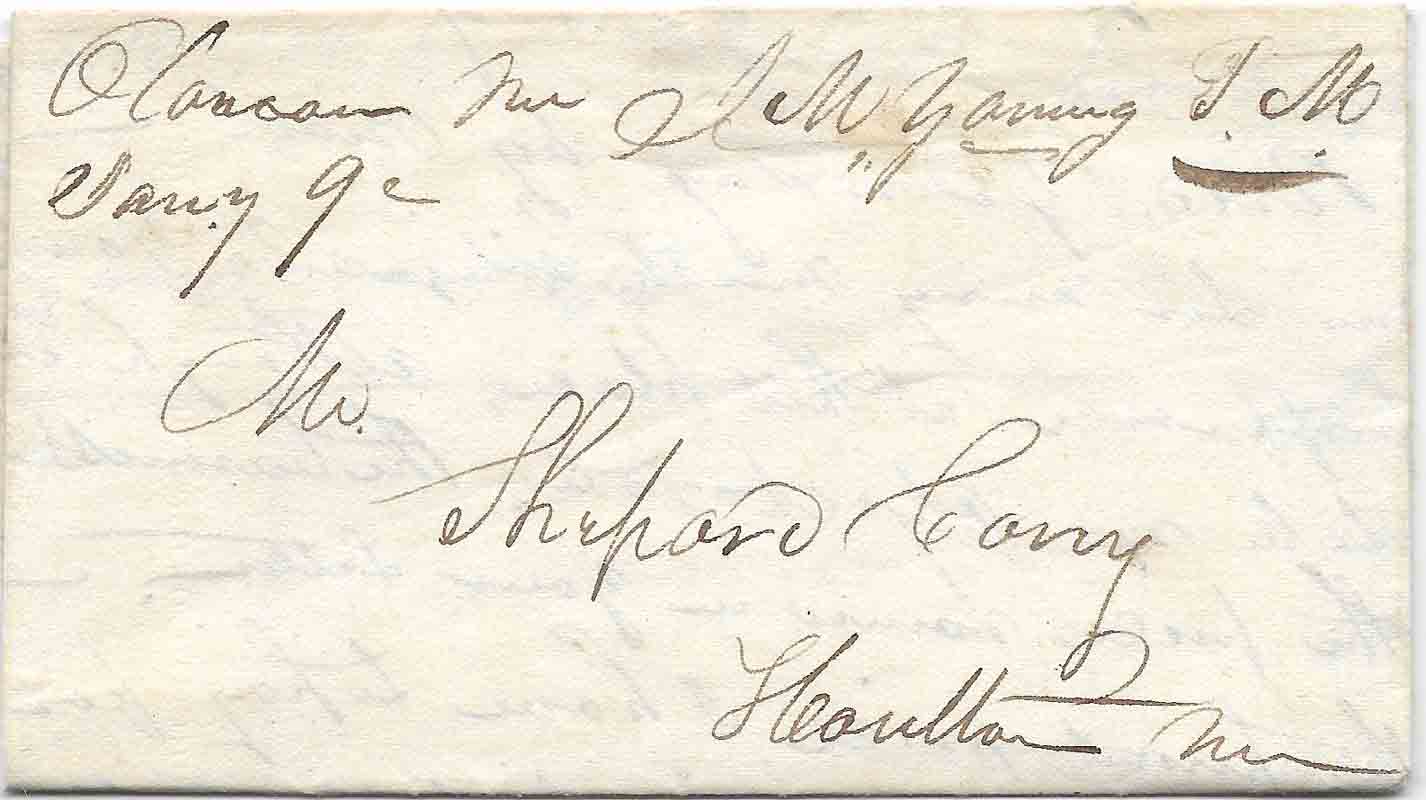 Olamon Me I M Young P. M.
Jany 9e
Mr.
Shepard Cary
Houlton Me